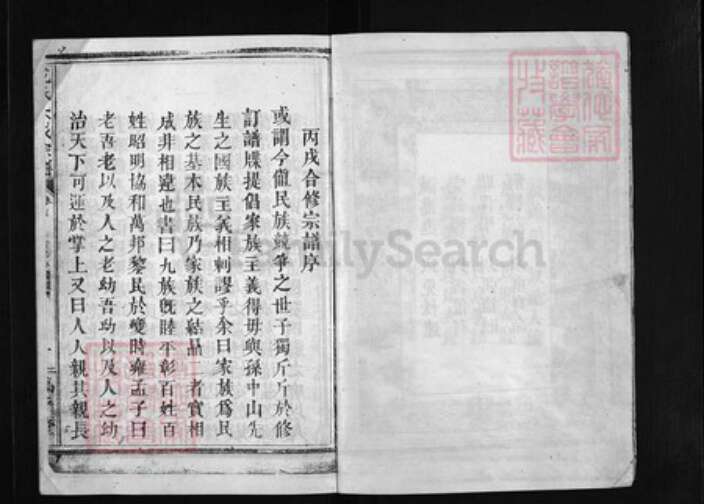 丙戌合修宗譜序
或謂今值民族競爭之世子獨斤斤於修
訂譜牒提倡家族主義得毋與孫中山先
生之國族主義相刺謬乎余曰家族為民
族之基本民族乃家族之結晶二者實相
成非相違也書曰九族既睦平章百姓百
姓昭明協和萬邦黎民於變時雍孟子曰
老吾老以及人之老幼吾幼以及人之幼
治天下可運於掌上又曰人人親其親長
FamilySearch